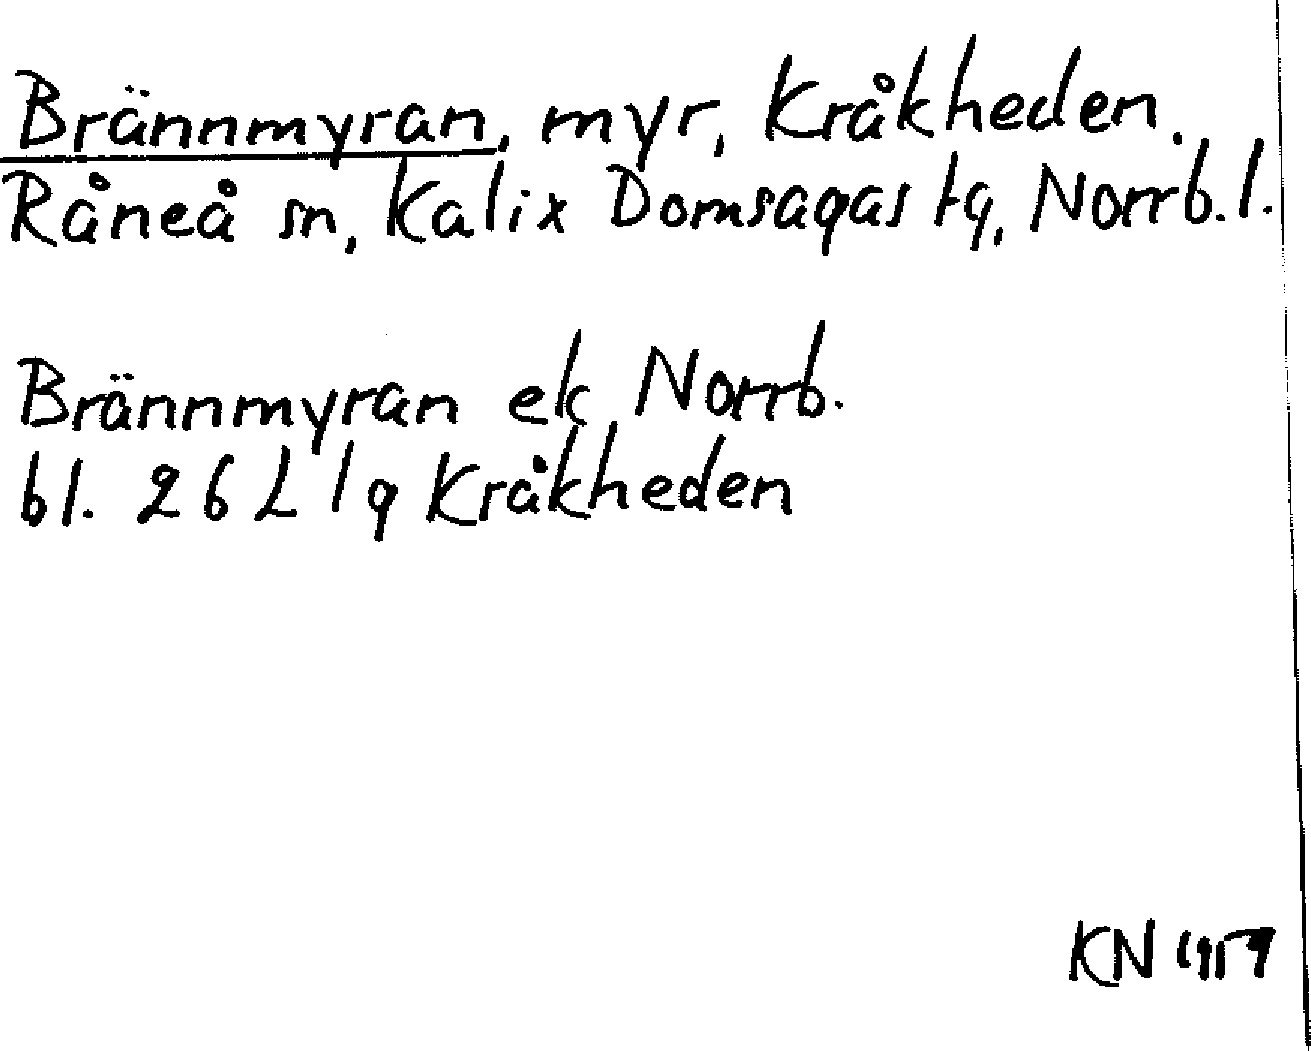 Brännmyran, myr, Kråkheden.
Råneå sn, Kalix Domsagas tg, Norrb. l.
Brännmyran ek Norrb.
bl. 26 L 1 g Kråkheden
KN